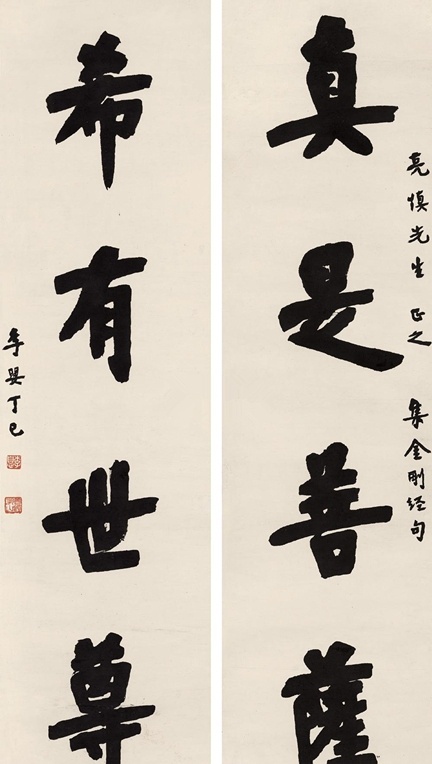 真是菩薩
亮慎先生 正之 集金剛经句
希有世尊
丁巳